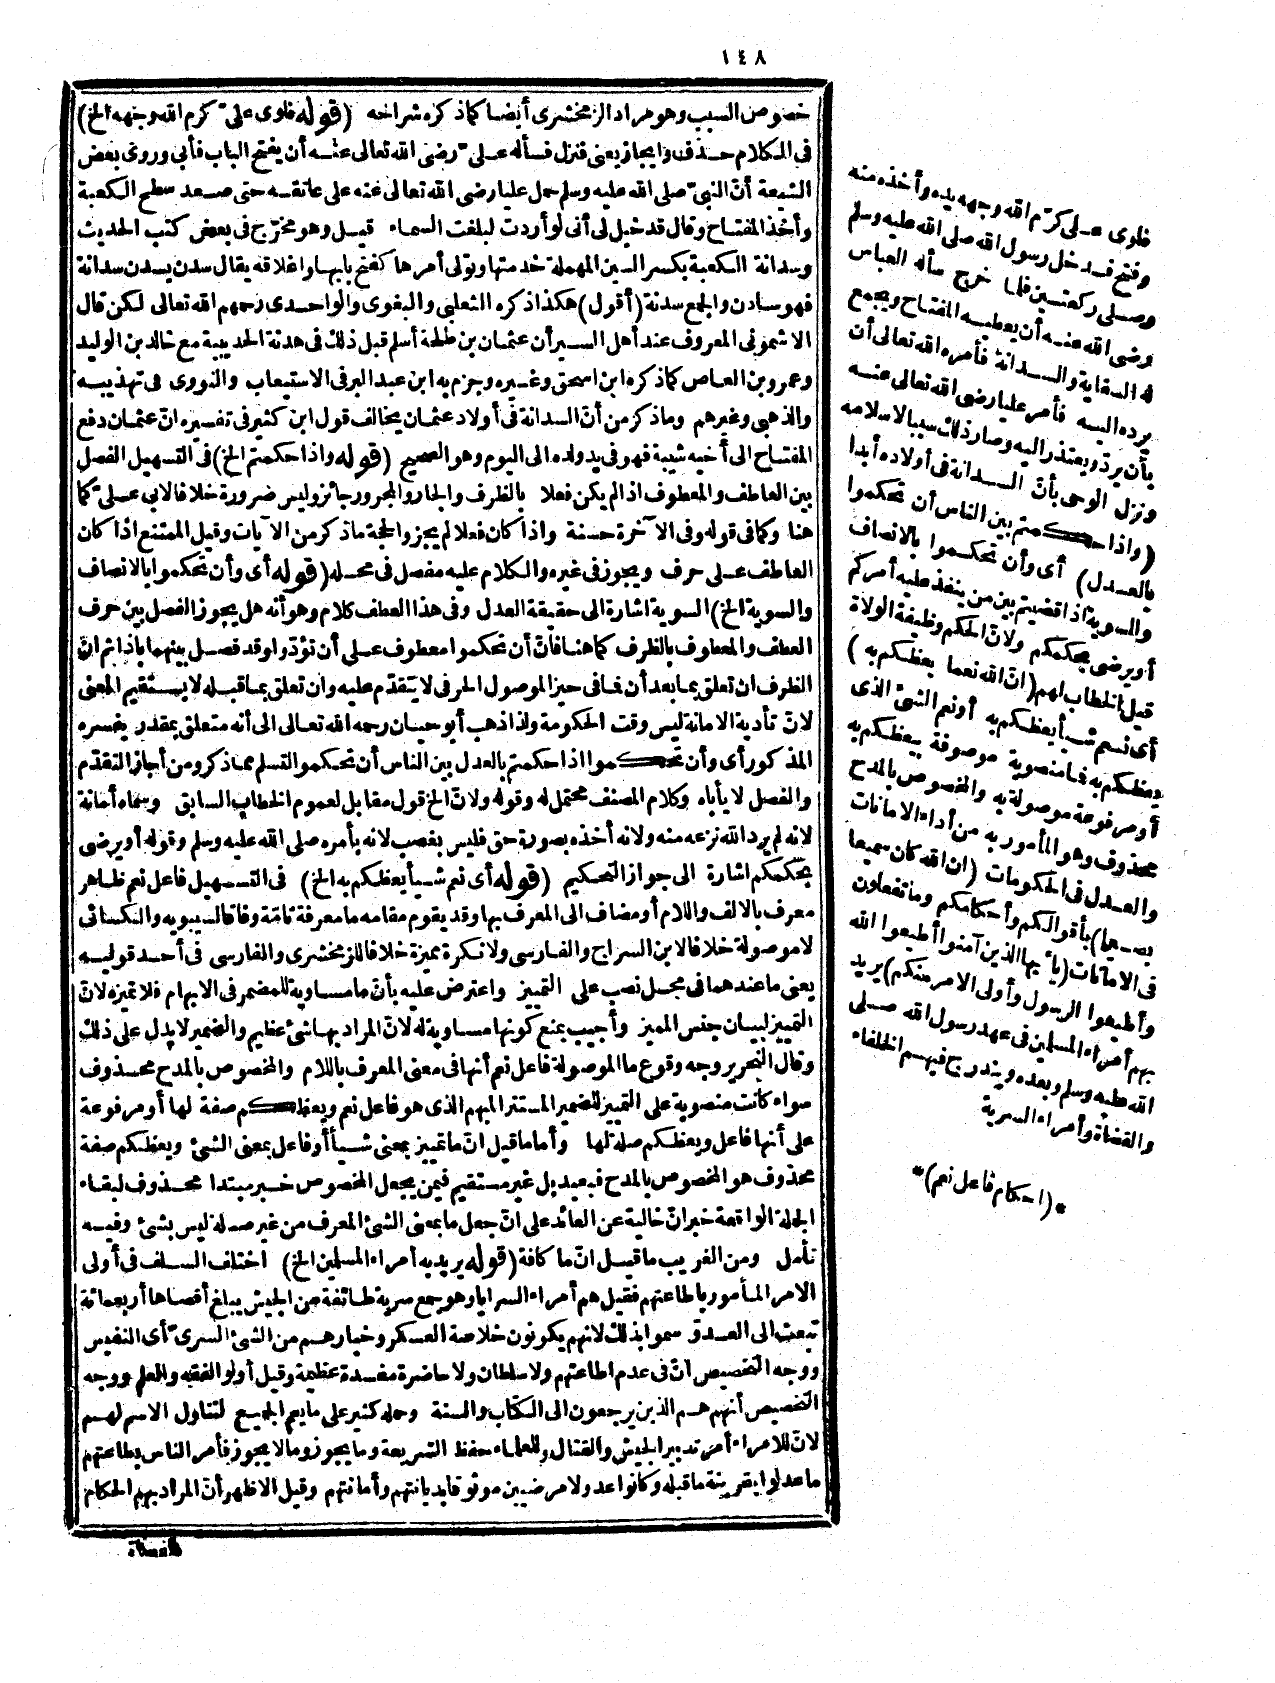 ١٤٨
خصوص السبب وهو مراد الزمخشرى أيضا كما ذكره شراحه (قوله فلوى علىّ كرم الله وجهه الخ)
فى الكلام حذف وايجاز يعنى فنزل فسأله علىّ رضى الله تعالى عنه أن يفتح الباب فأبى وروى بعض
الشيعة أنّ النبىّ صلى الله عليه وسلم حمل عليا رضى الله تعالى عنه على عاتقه حتى صعد سطح الكعبة
وأخذ المفتاح وقال قد خيل لى أنى لو أردت لبلغت السماء قيل وهو مخرّج فى بعض كتب الحديث
وسدانة الكعبة بكسر السين المهملة خدمتها وتولى أمرها كفتح بابها واغلاقه يقال سدن يسدن سدانة
فهو سادن والجمع سدنة (أقول) هكذا ذكره الثعلبى والبغوى والواحدى رحمهم الله تعالى لكن قال
الاشمونى المعروف عند أهل السير أن عثمان بن طلحة أسلم قبل ذلك فى هدنة الحديبية مع خالد بن الوليد
وعمرو بن العاص كما ذكره ابن اسحق وغيره وجزم به ابن عبد البر فى الاستيعاب والنووى فى تهذيبه
والذهبى وغيرهم وما ذكر من أنّ السدانة فى أولاد عثمان يخالف قول ابن كثير فى تفسيره انّ عثمان دفع
المفتاح الى أخيه شيبة فهو فى يد ولده الى اليوم وهو الصحيح (قوله واذا حكمتم الخ) فى التسهيل الفصل
بين العاطف والمعطوف اذا لم يكن فعلا بالظرف والجار والمجرور جائز وليس ضرورة خلافا لابى علىّ كما
هنا وكما فى قوله وفى الآخرة حسنة واذا كان فعلا لم يجز والحجة ما ذكر من الآيات وقيل الممتنع اذا كان
العاطف على حرف ويجوز فى غيره والكلام عليه مفصل فى محله (قوله أى وأن تحكموا بالانصاف
والسوية الخ) السوية اشارة الى حقيقة العدل وفى هذا العطف كلام وهو أنه هل يجوز الفصل بين حرف
العطف والمعطوف بالظرف كما هنا فانّ أن تحكموا معطوف على أن تؤدّوا وقد فصل بينهما باذا ثم انّ
الظرف ان تعلق بما بعد أن فما فى حيز الموصول الحرفى لا يتقدّم عليه وان تعلق بما قبله لا يستقيم المعنى
لانّ تأدية الامانة ليس وقت الحكومة ولذا ذهب أبو حيان رحمه الله تعالى الى أنه متعلق بمقدر يفسره
المذكور أى وأن تحكموا اذا حكمتم بالعدل بين الناس أن تحكموا لتسلم مما ذكر ومن أجاز التقدّم
والفصل لا يأباه وكلام المصنف محتمل له وقوله ولانّ الخ قول مقابل لعموم الخطاب السابق وسماه أمانة
لانه لم يرد الله نزعه منه ولانه أخذه بصورة حق فليس بغصب لانه بأمره صلى الله عليه وسلم وقوله أو يرضى
بحكمكم اشارة الى جواز التحكيم (قوله أى نعم شيأ يعظكم به الخ) فى التسهيل فاعل نعم ظاهر
معرف بالالف واللام أو مضاف الى المعرف بها وقد يقوم مقامه ما معرفة تامّة وفاقا لسيبويه والكسائى
لا موصولة خلافا لابن السراج والفارسى ولا نكرة مميزة خلافا للزمخشرى والفارسى فى أحد قوليه
يعنى ما عندهما فى محل نصب على التمييز واعترض عليه بأنّ ما مساوية للمضمر فى الابهام فلا تميزه لانّ
التمييز لبيان جنس المميز وأجيب بمنع كونها مساوية له لانّ المراد بها شئ عظيم والضمير لا يدل على ذلك
وقال النحرير وجه وقوع ما الموصولة فاعل نعم أنها فى معنى المعرف باللام والمخصوص بالمدح محذوف
سواء كانت منصوبة على التمييز للضمير المستتر المبهم الذى هو فاعل نعم ويعظكم صفة لها أو مرفوعة
على أنها فاعل ويعظكم صلة لها وأما ما قيل انّ ما تمييز بمعنى شيأ أو فاعل بمعنى الشئ ويعظكم صفة
محذوف هو المخصوص بالمدح فبعيد بل غير مستقيم فيمن يجعل المخصوص خبر مبتدا محذوف لبقاء
الجملة الواقعة خبر انّ خالية عن العائد على انّ جعل ما بمعنى الشئ المعرف من غير صلة ليس بشئ وفيه
تأمل ومن الغريب ما قيل انّ ما كافة (قوله يريد به أمراء المسلمين الخ) اختلف السلف فى أولى
الامر المأمور باطاعتهم فقيل هم أمراء السرايا وهو جمع سرية طائفة من الجيش يبلغ أقصاها أربعمائة
تبعث الى العدوّ سموا بذلك لانهم يكونون خلاصة العسكر وخيارهم من الشئ السرىّ أى النفيس
ووجه التخصيص انّ فى عدم اطاعتهم ولا سلطان ولا حاضرة مفسدة عظيمة وقيل أولو الفقه والعلم ووجه
التخصيص أنهم هم الذين يرجعون الى الكتاب والسنة وحمله كثير على ما يعم الجميع لتناول الاسم لهم
لانّ للامراء أمر تدبير الجيش والقتال وللعلماء حفظ الشريعة وما يجوز وما لا يجوز فأمر الناس بطاعتهم
ما عدلوا بقرينة ما قبله وكانوا عدولا مرضيين موثوقا بديانتهم وأمانتهم وقيل الاظهر أنّ المراد بهم الحكام
فلوى علىّ كرّم الله وجهه يده وأخذه منه
وفتح فدخل رسول الله صلى الله عليه وسلم
وصلى ركعتين فلما خرج سأله العباس
رضى الله عنه أن يعطيه المفتاح ويجمع
له السقاية والسدانة فأمره الله تعالى أن
يرده اليه فأمر عليا رضى الله تعالى عنه
بأن يردّ ويعتذر اليه وصار ذلك سببا لاسلامه
ونزل الوحى بأنّ السدانة فى أولاده أبدا
(واذا حكمتم بين الناس أن تحكموا
بالعدل) أى وأن تحكموا بالانصاف
والسوية اذا قضيتم بين من ينفذ عليه أمركم
أو يرضى بحكمكم ولانّ الحكم وظيفة الولاة
قيل الخطاب لهم (انّ الله نعما يعظكم به)
أى نعم شيأ يعظكم به أو نعم الشئ الذى
يعظكم به فما منصوبة موصوفة بيعظكم به
أو مرفوعة موصولة به والمخصوص بالمدح
محذوف وهو المأمور به من أداء الامانات
والعدل فى الحكومات (ان الله كان سميعا
بصيرا) بأقوالكم وأحكامكم وما تفعلون
فى الامانات (يا أيها الذين آمنوا أطيعوا الله
وأطيعوا الرسول وأولى الامر منكم) يريد
بهم أمراء المسلمين فى عهد رسول الله صلى
الله عليه وسلم وبعده ويندرج فيهم الخلفاء
والقضاة وأمراء السرية
*(احكام فاعل نعم)*